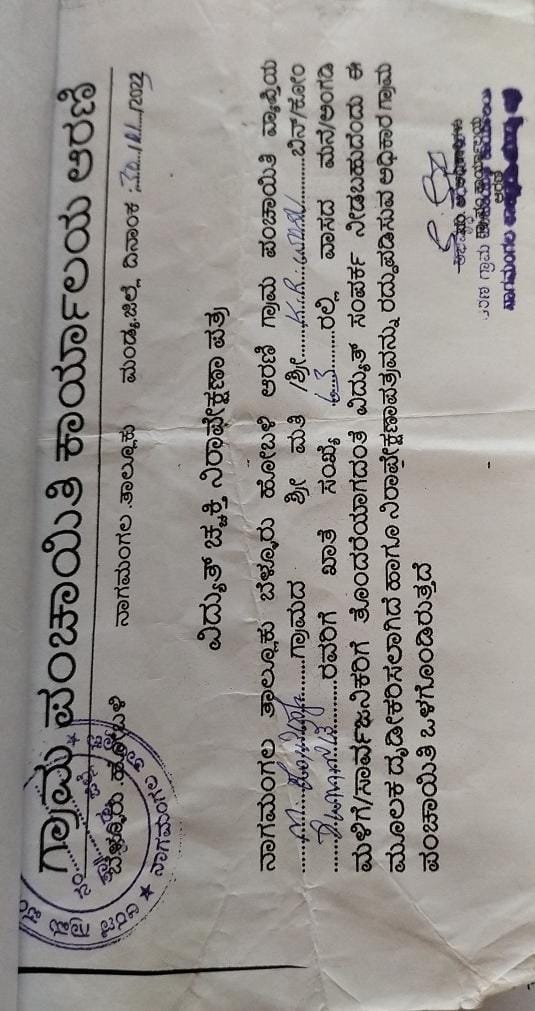 ಗ್ರಾಮ ಪಂಚಾಯಿತಿ ಕಾರ್ಯಾಲಯ ಆರಣಿ
ಬೆಳ್ಳೂರು .ಹೋಬಳಿ ನಾಗಮಂಗಲ .ತಾಲ್ಲೂಕು ಮಂಡ್ಯ.ಜಿಲ್ಲೆ ದಿನಾಂಕ :30/11/2022
ವಿದ್ಯುತ್ ಚ್ಚಕ್ತಿ ನಿರಾಪೇಕ್ಷಣಾ ಪತ್ರ
ನಾಗಮಂಗಲ ತಾಲ್ಲೂಕು ಬೆಳ್ಳೂರು ಹೋಬಳಿ ಆರಣಿ ಗ್ರಾಮ ಪಂಚಾಯಿತಿ ವ್ಯಾಪ್ತಿಯ
ಗ್ರಾಮದ ಶ್ರೀ ಮತಿ /ಶ್ರೀ K.R. ಬಿನ್/ಕೋಂ
ರವರಿಗೆ ಖಾತೆ ಸಂಖ್ಯೆ 63 ರಲ್ಲಿ ವಾಸದ ಮನೆ/ಅಂಗಡಿ
ಮಳಿಗೆ/ಸಾರ್ವಜನಿಕರಿಗೆ ತೊಂದರೆಯಾಗದಂತೆ ವಿದ್ಯುತ್ ಸಂಪರ್ಕ ನೀಡಬಹುದೆಂದು ಈ
ಮೂಲಕ ದೃಡೀಕರಿಸಲಾಗಿದೆ ಹಾಗೂ ನಿರಾಪೇಕ್ಷಣಾಪತ್ರವನ್ನು ರದ್ದುಪಡಿಸುವ ಅಧಿಕಾರ ಗ್ರಾಮ
ಪಂಚಾಯಿತಿ ಒಳಗೊಂಡಿರುತ್ತದೆ
ಆರಣಿ ಗ್ರಾಮ
ನಾಗಮಂಗಲ